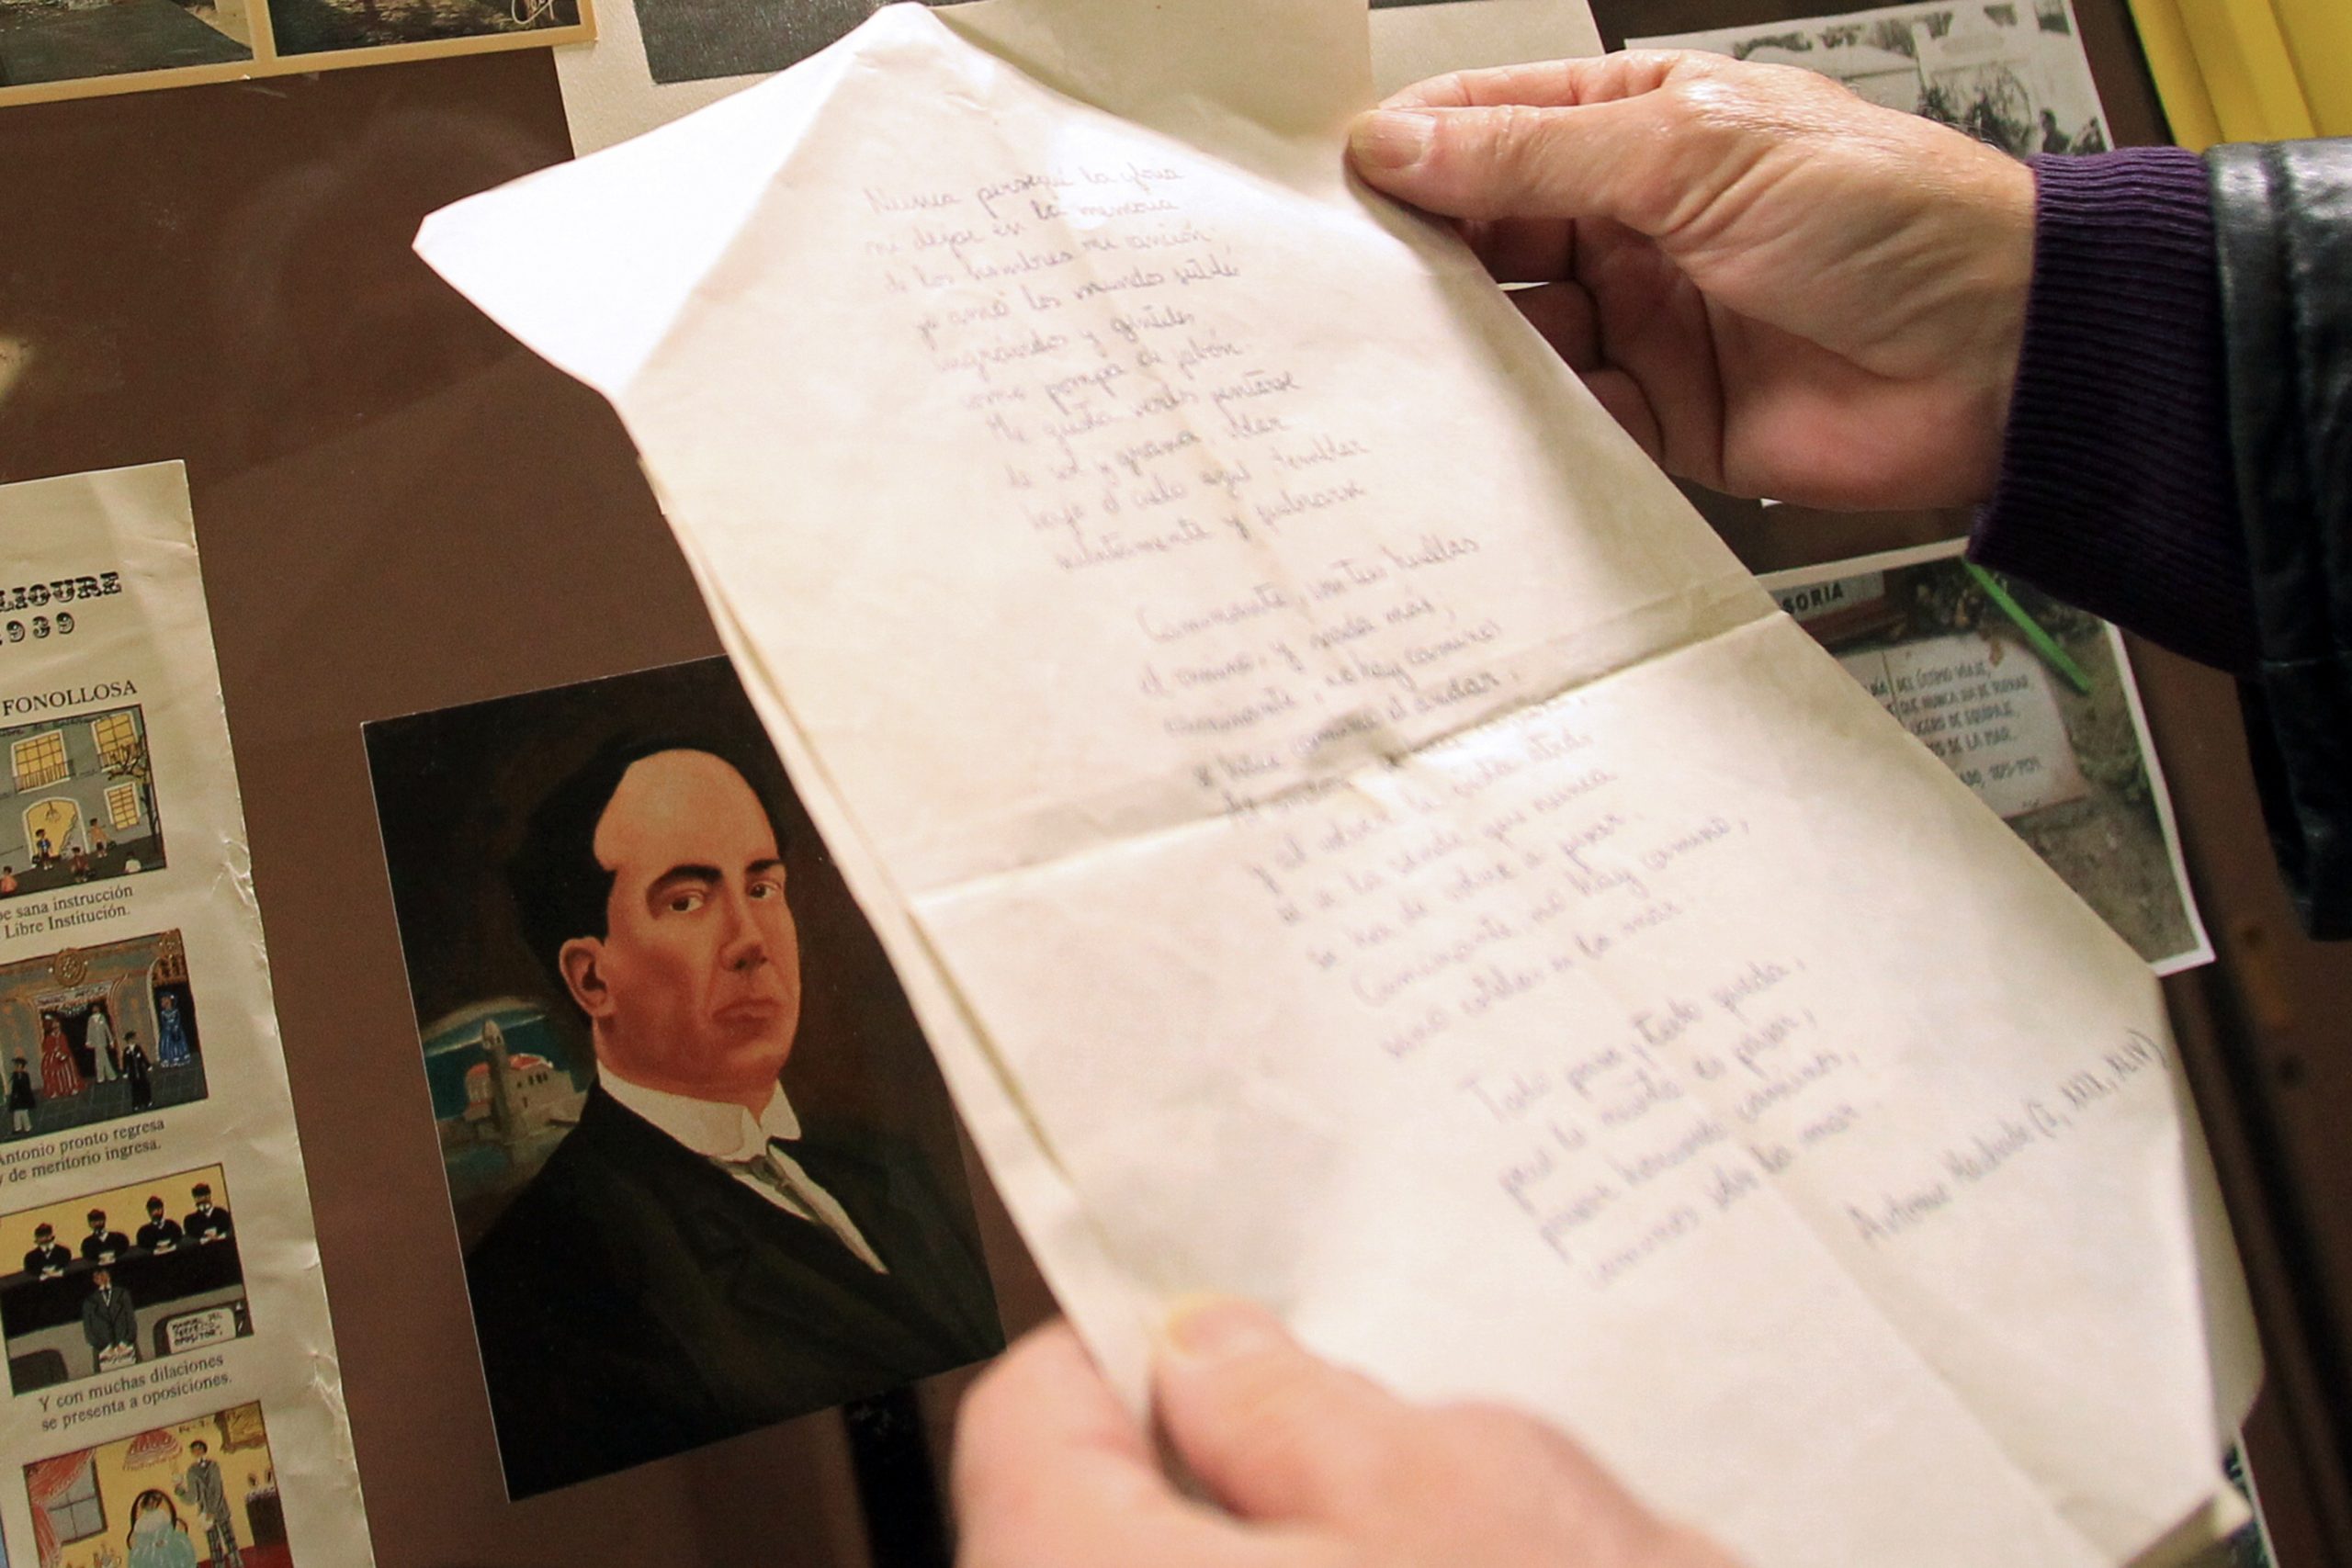 LIOURE
1939
FONOLLOSA
be sana instrucción
Libre Institución.
Antonio pronto regresa
y de meritorio ingresa.
OPOSITOR
Y con muchas dilaciones
se presenta a oposiciones.
Nunca perseguí la gloria
ni dejar en la memoria
de los hombres mi canción
yo amo los mundos sutiles
ingrávidos y gentiles
como pompa de jabón.
Me gusta verlos pintarse
de sol y grana, volar
bajo el cielo azul temblar
súbitamente y quebrarse
Caminante, son tus huellas
el camino, y nada más,
caminante, no hay caminos
se hace camino al andar.
Al andar
y al volver la vista atrás
se ve la senda que nunca
se ha de volver a pisar.
Caminante, no hay camino,
sino estelas en la mar.
Todo pasa y todo queda,
pero lo nuestro es pasar,
pasar haciendo caminos,
caminos sobre la mar.
Antonio Machado (G, XXIX, XLIV)
SORIA
DÍA DEL ÚLTIMO VIAJE,
QUE NUNCA HA DE TORNAR,
LIGERO DE EQUIPAJE,
DE LA MAR.
1875-1939